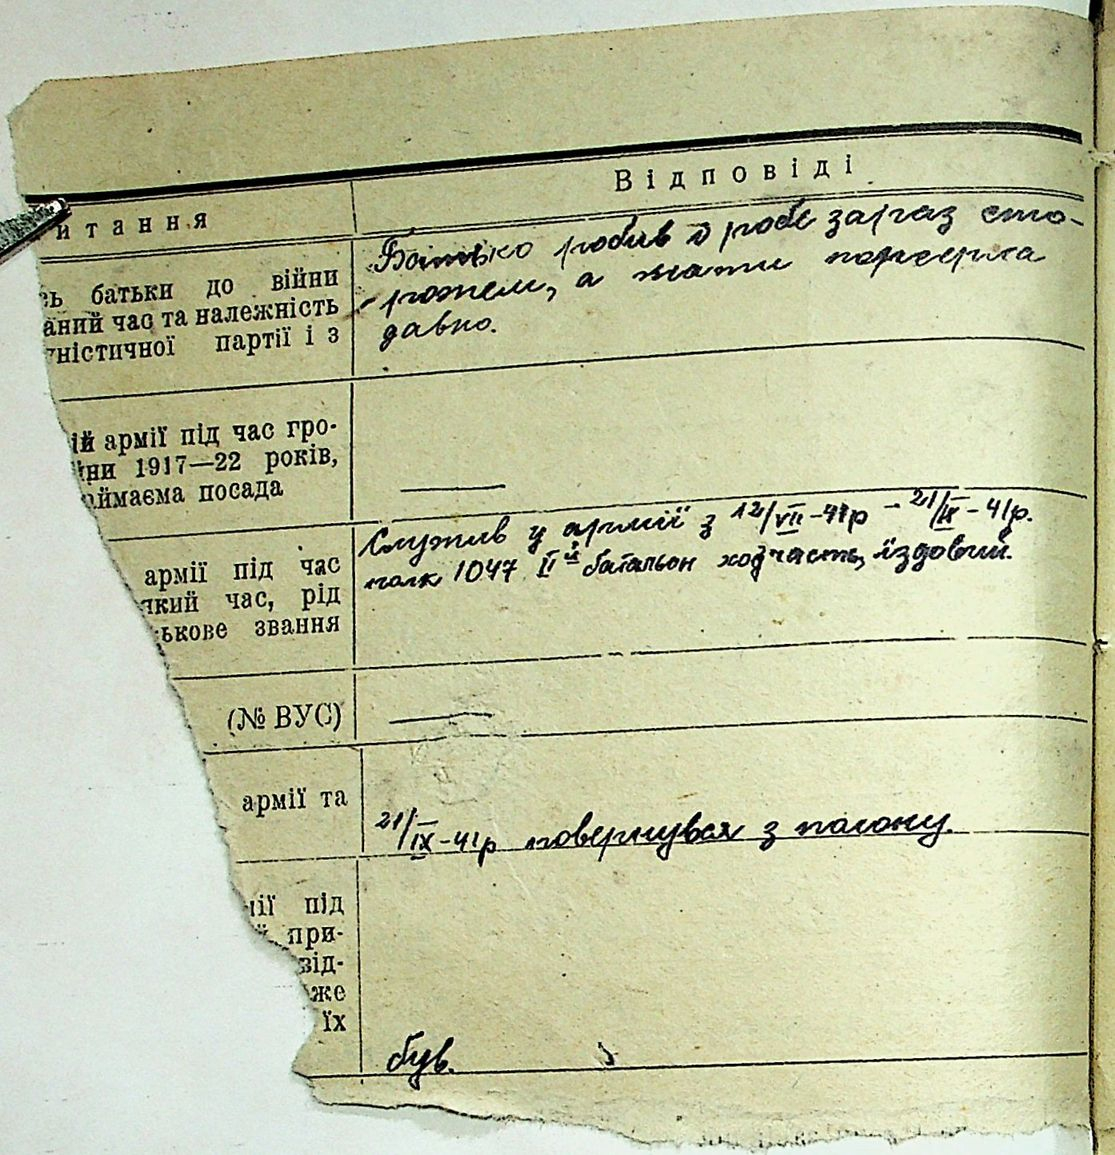 Відповіді
итання
Батько робив й робе зараз сто-
рожем, а мати померла
давно.
сь батьки до війни
аний час та належність
ністичної партії і з
ій армії під час гро-
ни 1917—22 років,
аймаєма посада
Служив у армії з 12/VII-41р - 21/IX-41р.
полк 1047 IIй батальон хозчасть, їздовий.
армії під час
який час, рід
ськове звання
(№ ВУС)
армії та
21/IX-41р повернувся з полону.
мії під
й, при-
від-
же
їх
був.